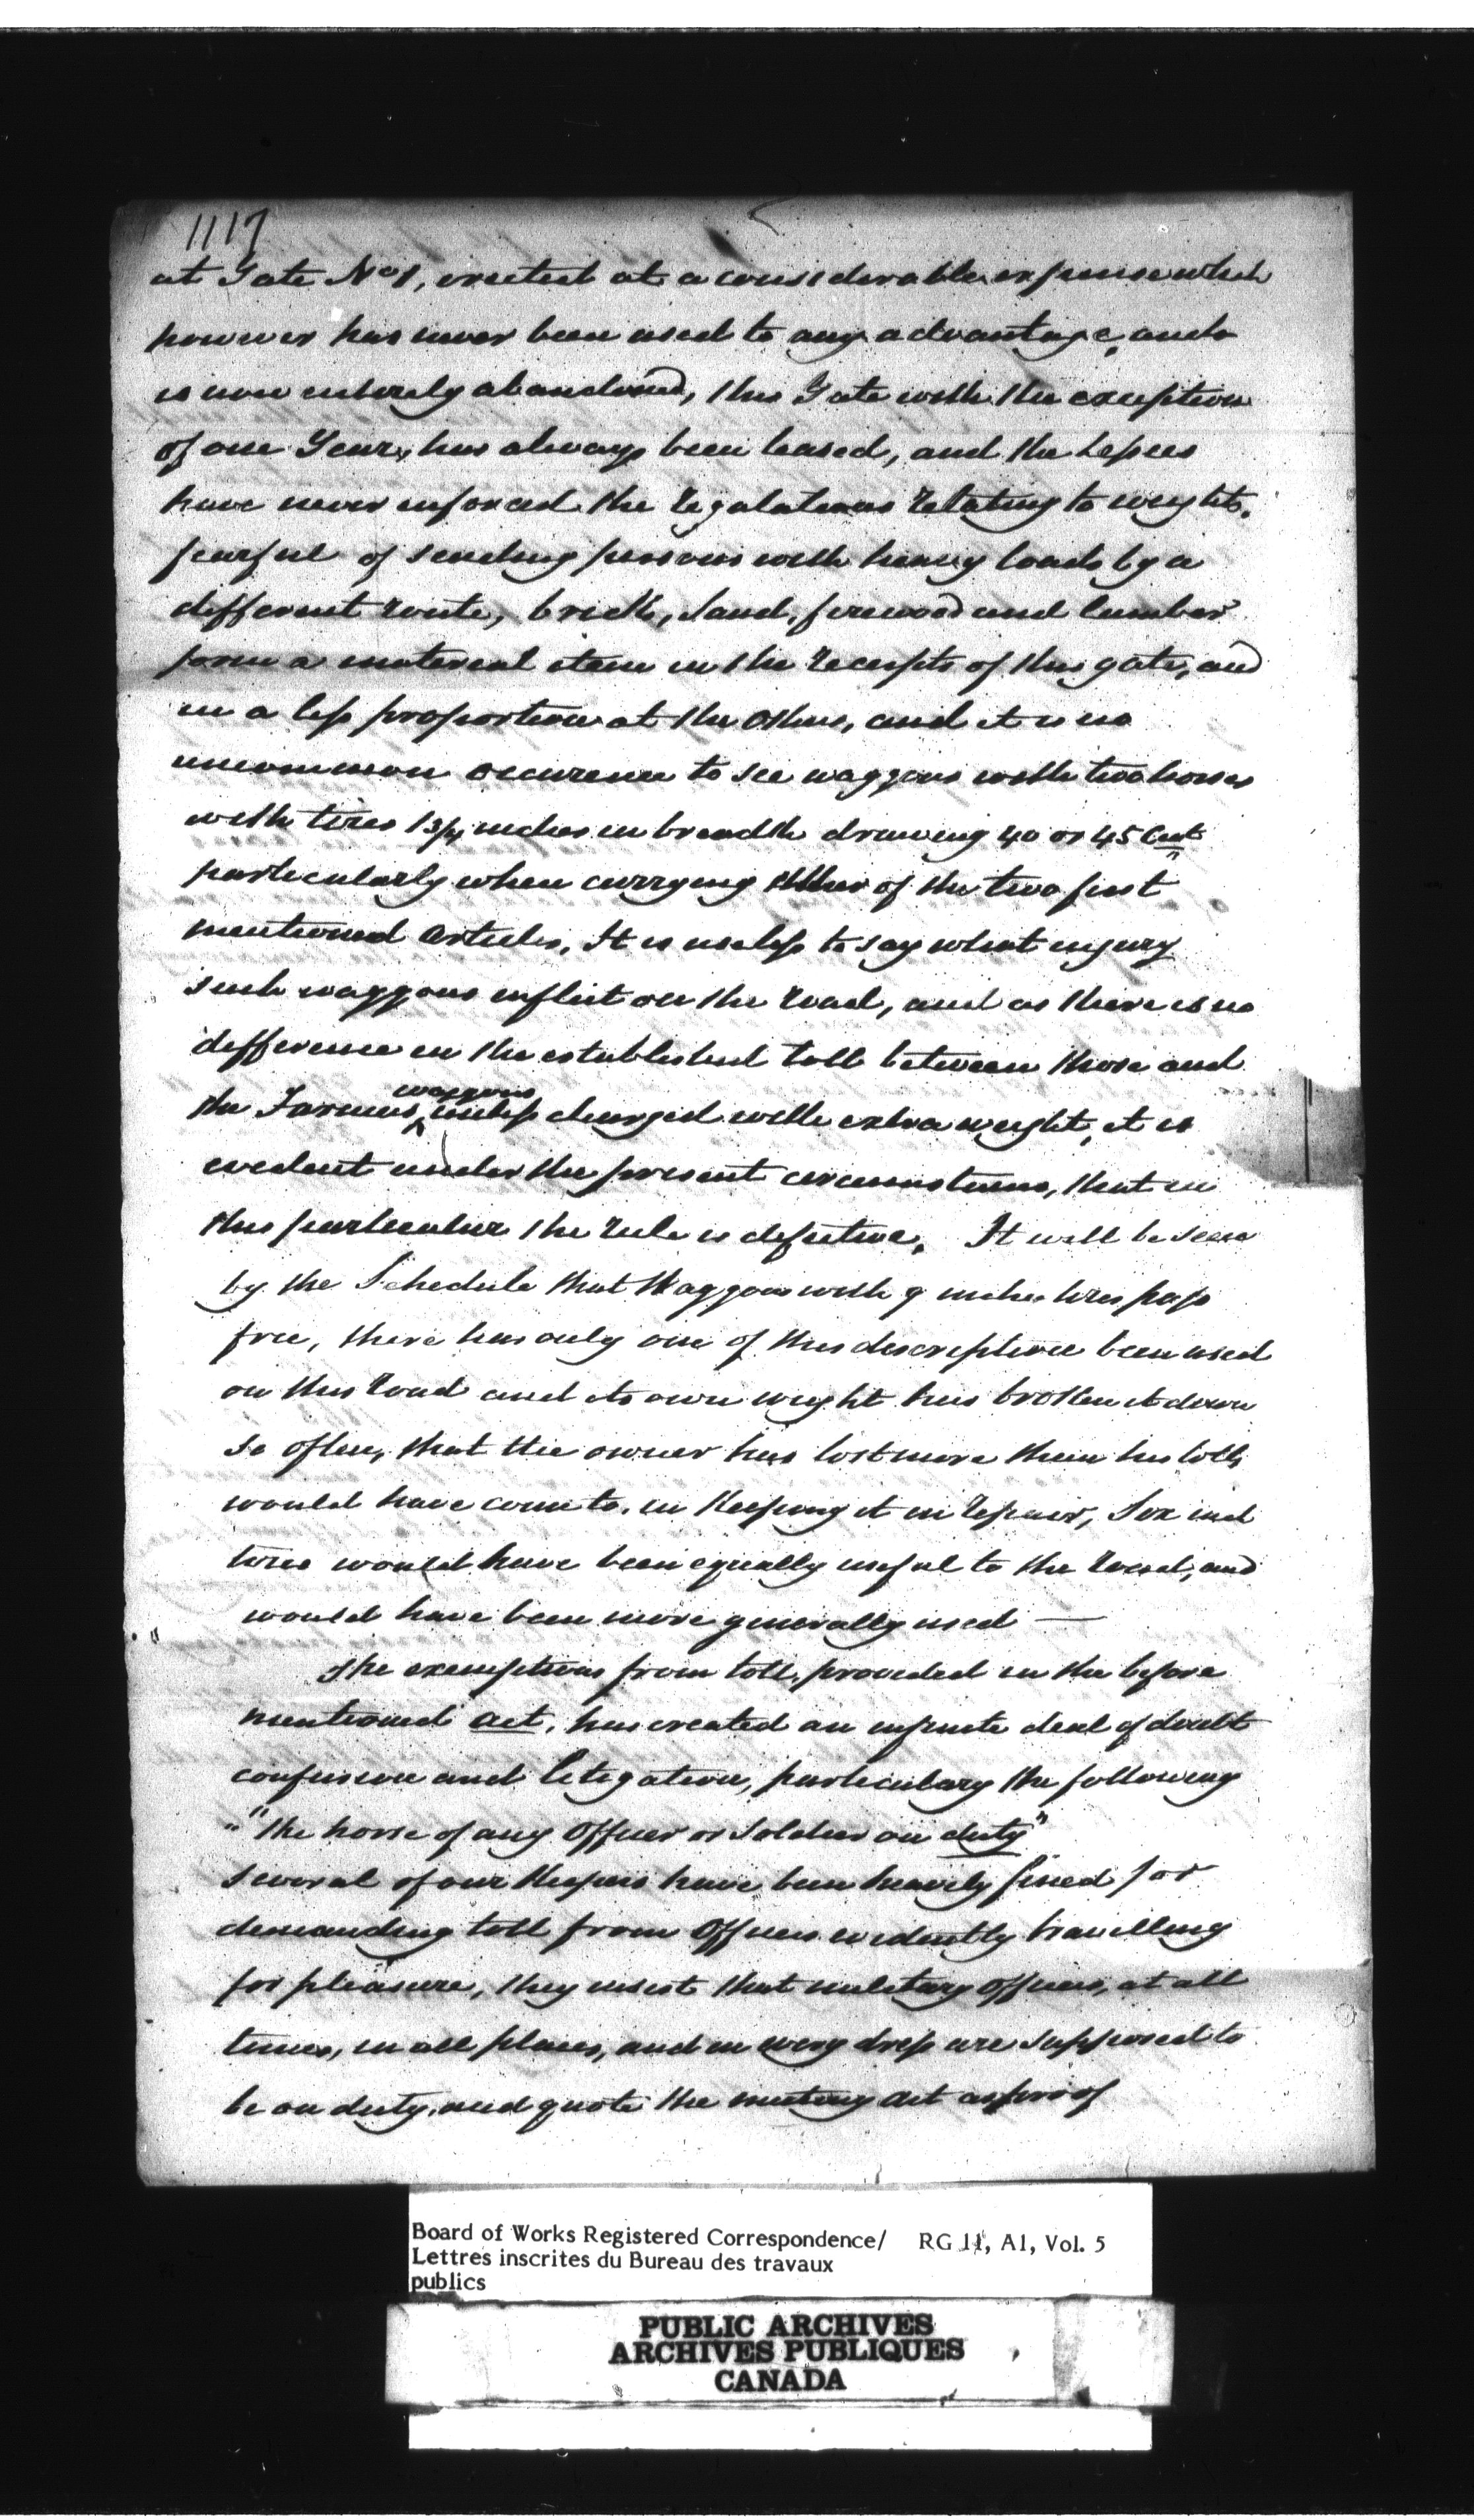 1117
at Gate No 1, erected at a considerable expense which
however has never been used to any advantage, and
is now entirely abandoned, this Gate with the exception
of one Year, has always been leased, and the Lessees
have never enforced the regulations relating to weights,
fearful of sending persons with heavy loads by a
different route, brick, sand, firewood and lumber
form a material item in the receipts of this gate, and
in a less proportion at the others, and it is no
uncommon occurence to see waggons with two horses
with tires 1 3/4 inches in breadth drawing 40 or 45 Cwt
particularly when carrying either of the two first
mentioned articles, It is useless to say what injury
such waggons inflict on the road, and as there is no
difference in the established toll between those and
waggons
the Farmers unless charged with extra weight, it is
evident under the present circumstances, that in
this particular the rule is defective. It will be seen
by the Schedule that Waggons with 9 inches tires pass
free, there has only one of this description been used
on this road and its own weight has broken it down
so often, that the owner has lost more than his tolls
would have come to, in keeping it in repair, Six inch
tires would have been equally useful to the road, and
would have been more generally used —
The exemptions from toll, provided in the before
mentioned act, has created an infinite deal of doubt
confusion and litigation, particulary the following
"the horse of any Officer or Soldier on duty"
several of our keepers have been heavily fined for
demanding toll from Officers evidently travelling
for pleasure, they insist that military officers, at all
times, in all places, and in every dress are supposed to
be on duty, and quote the mutiny act as proof
Board of Works Registered Correspondence/ RG 11, A1, Vol. 5
Lettres inscrites du Bureau des travaux
publics
PUBLIC ARCHIVES
ARCHIVES PUBLIQUES
CANADA